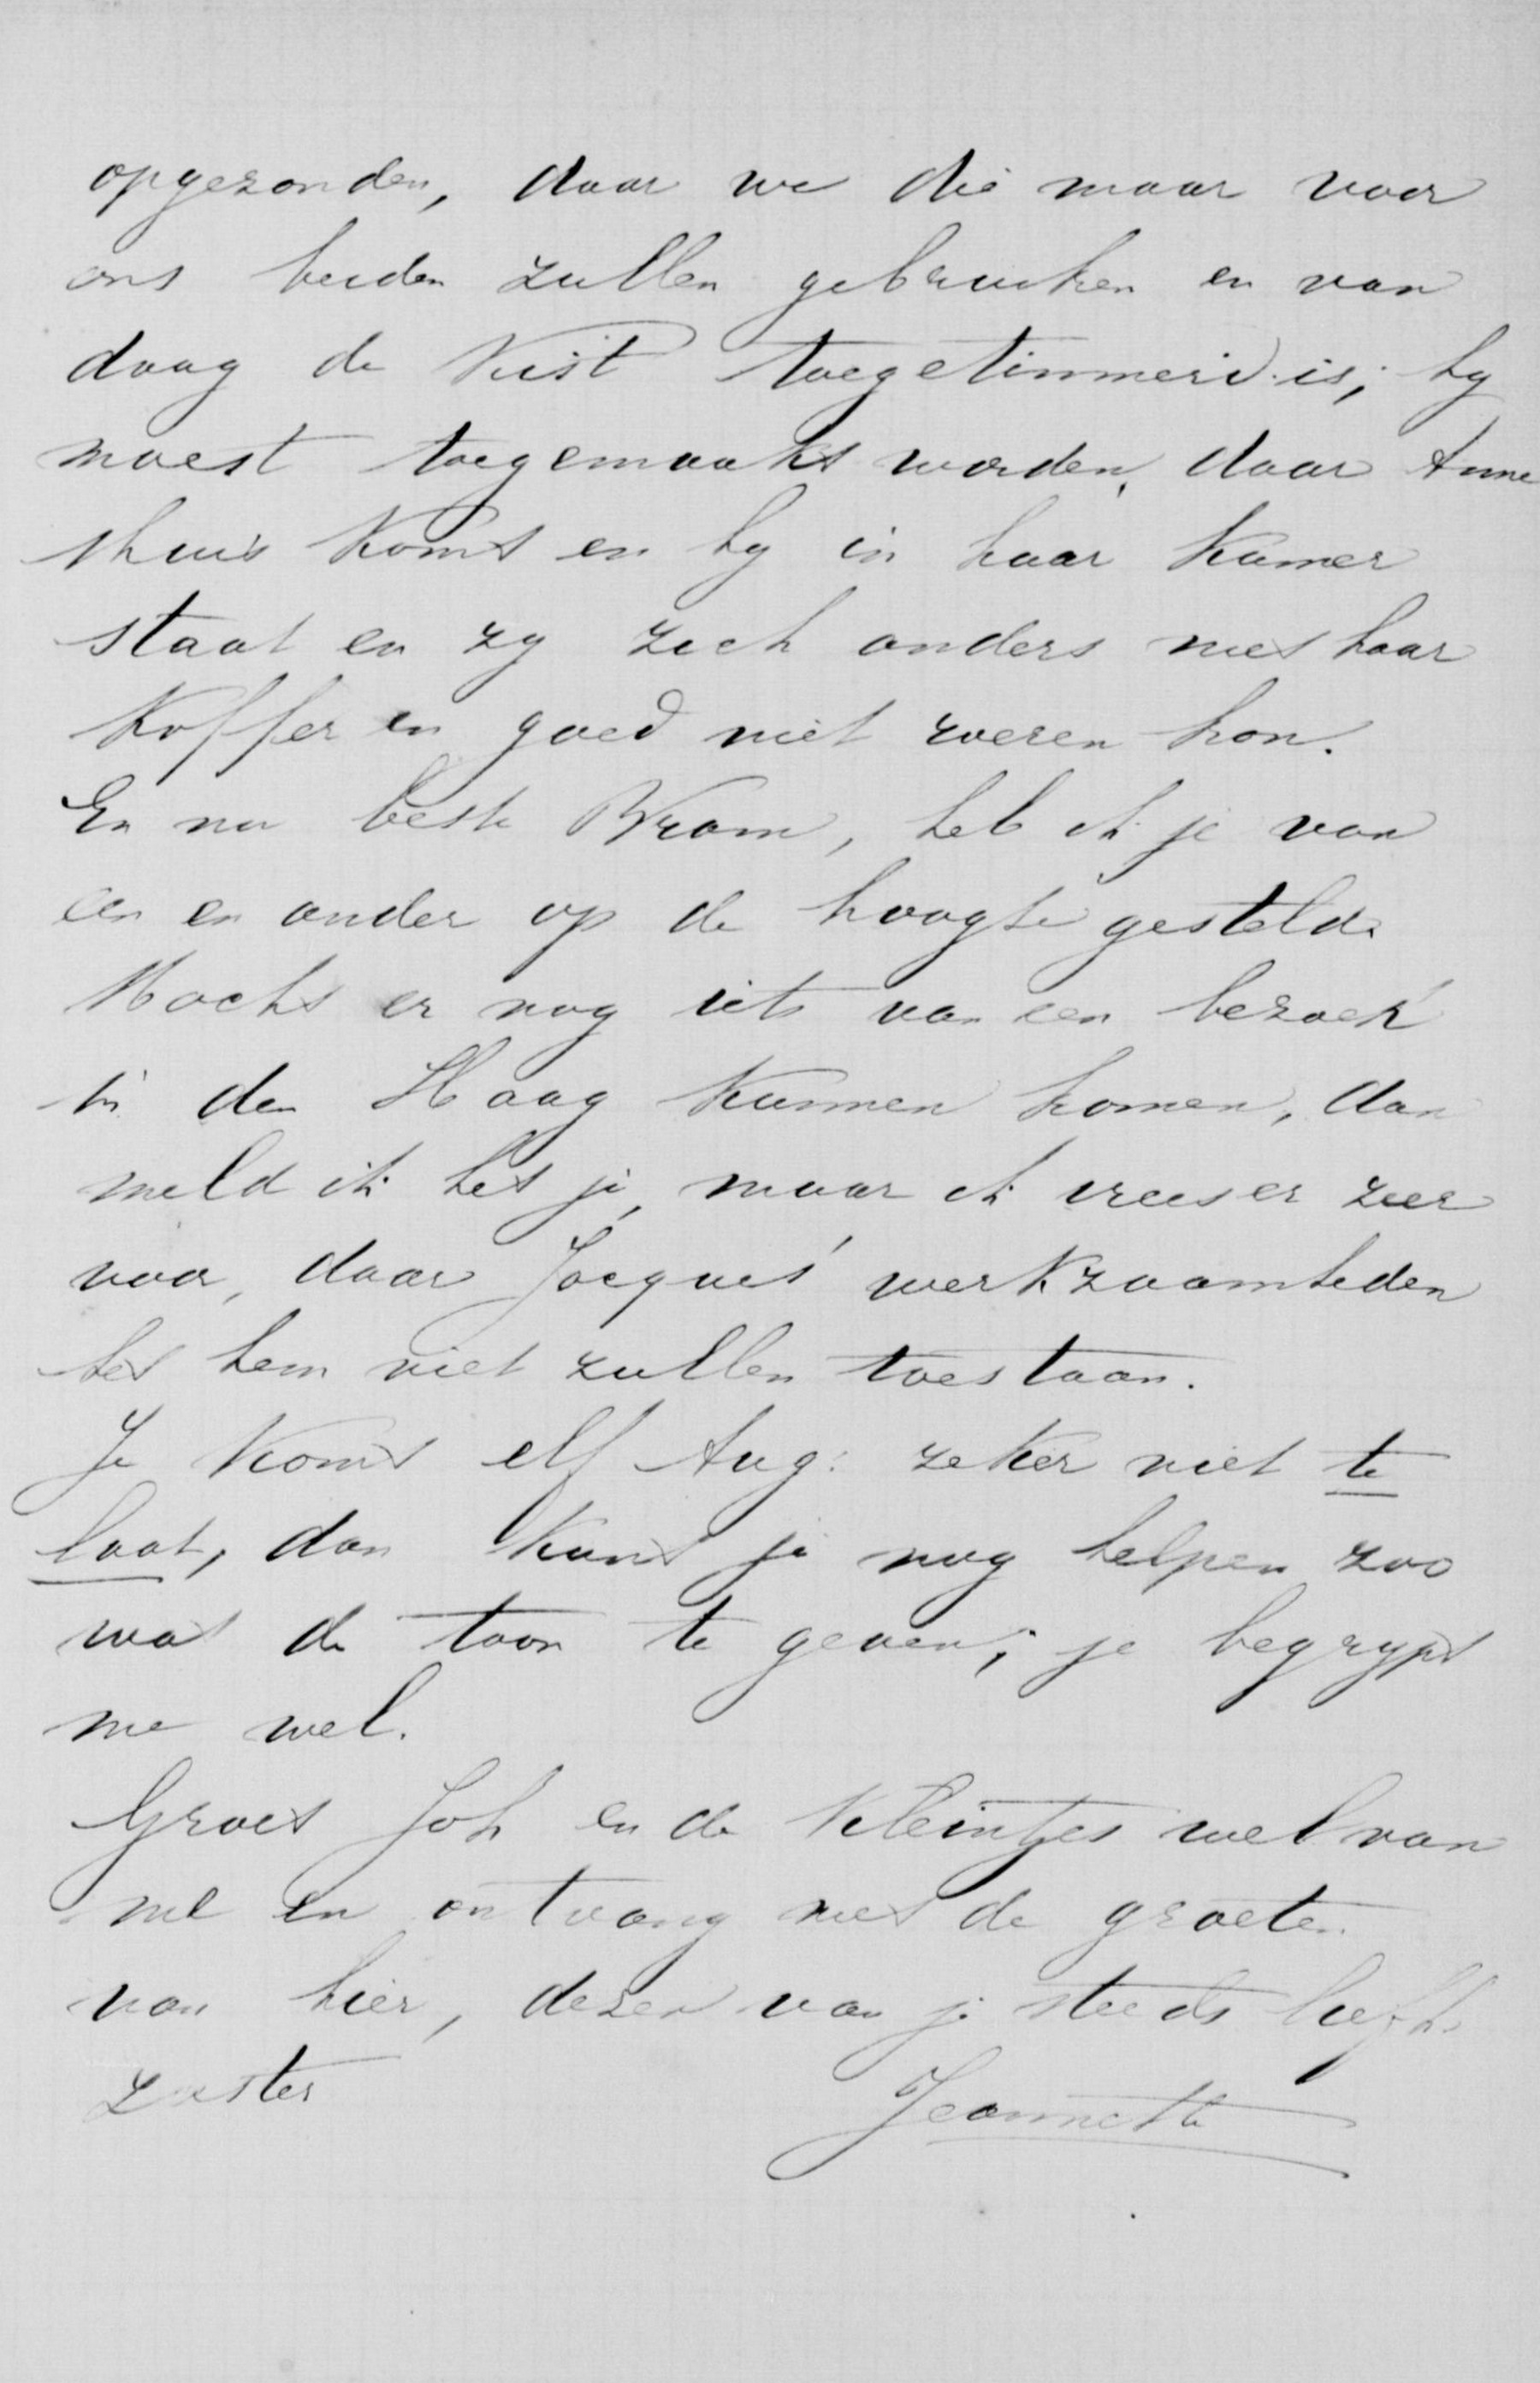 opgezonden, daar we die maar voor
ons beiden zullen gebruiken en van
daag de Kist toegetimmerd is; hy
moest toegemaakt worden, daar Anne
thuis komt en hy in haar Kamer
staat en zy zich anders met haar
Koffer en goed niet roeren kon.
En nu beste Bram, heb ik je van
een en ander op de hoogte gesteld.
Mocht er nog iets van een bezoek
in den Haag kunnen komen, dan
meld ik het je, maar ik vrees er zeer
voor, daar Jacques' werkzaamheden
het hem niet zullen toestaan.
Je komt elf Aug: zeker niet te
laat, dan kunt je nog helpen zoo
wat de toon te geven; je begrypt
me wel.
Groet Joh en de Kleintjes wel van
me en ontvang met de groeten
van hier, dezen van je steeds liefh.
zuster Jeannette